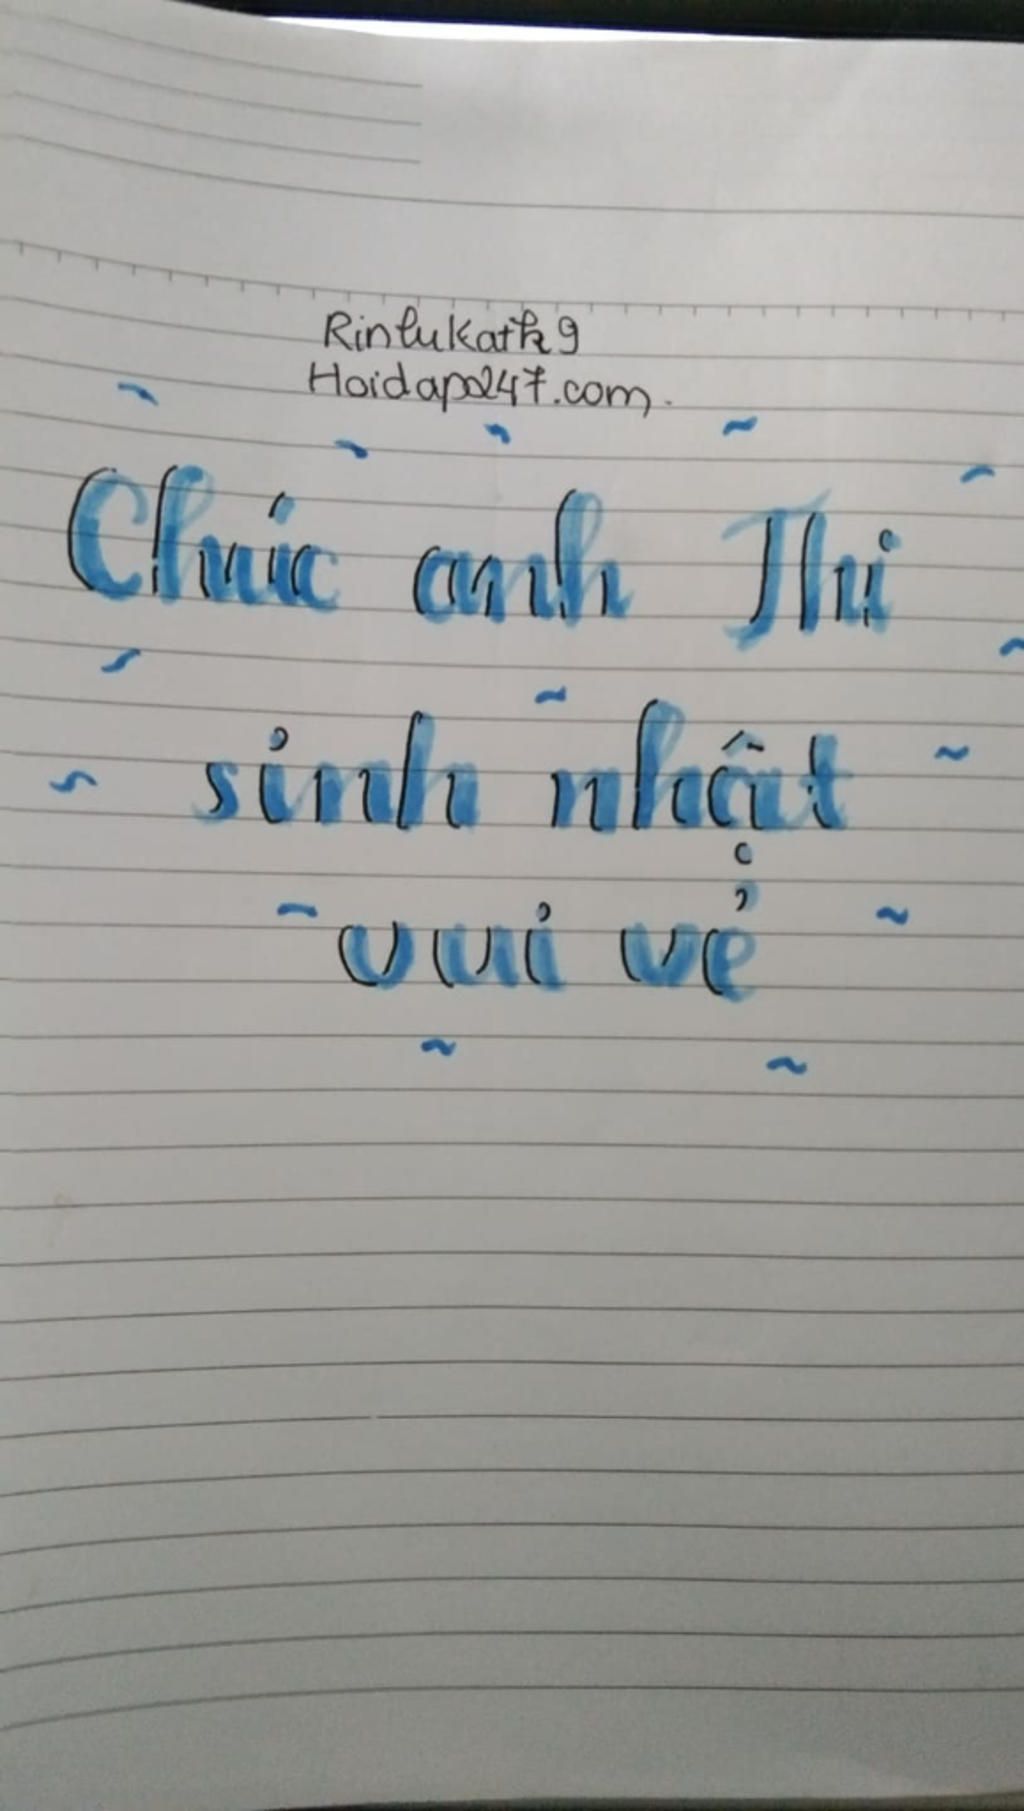 Rinlukath9
Hoidap247.com.
Chúc anh Thi
sinh nhật
vui vẻ